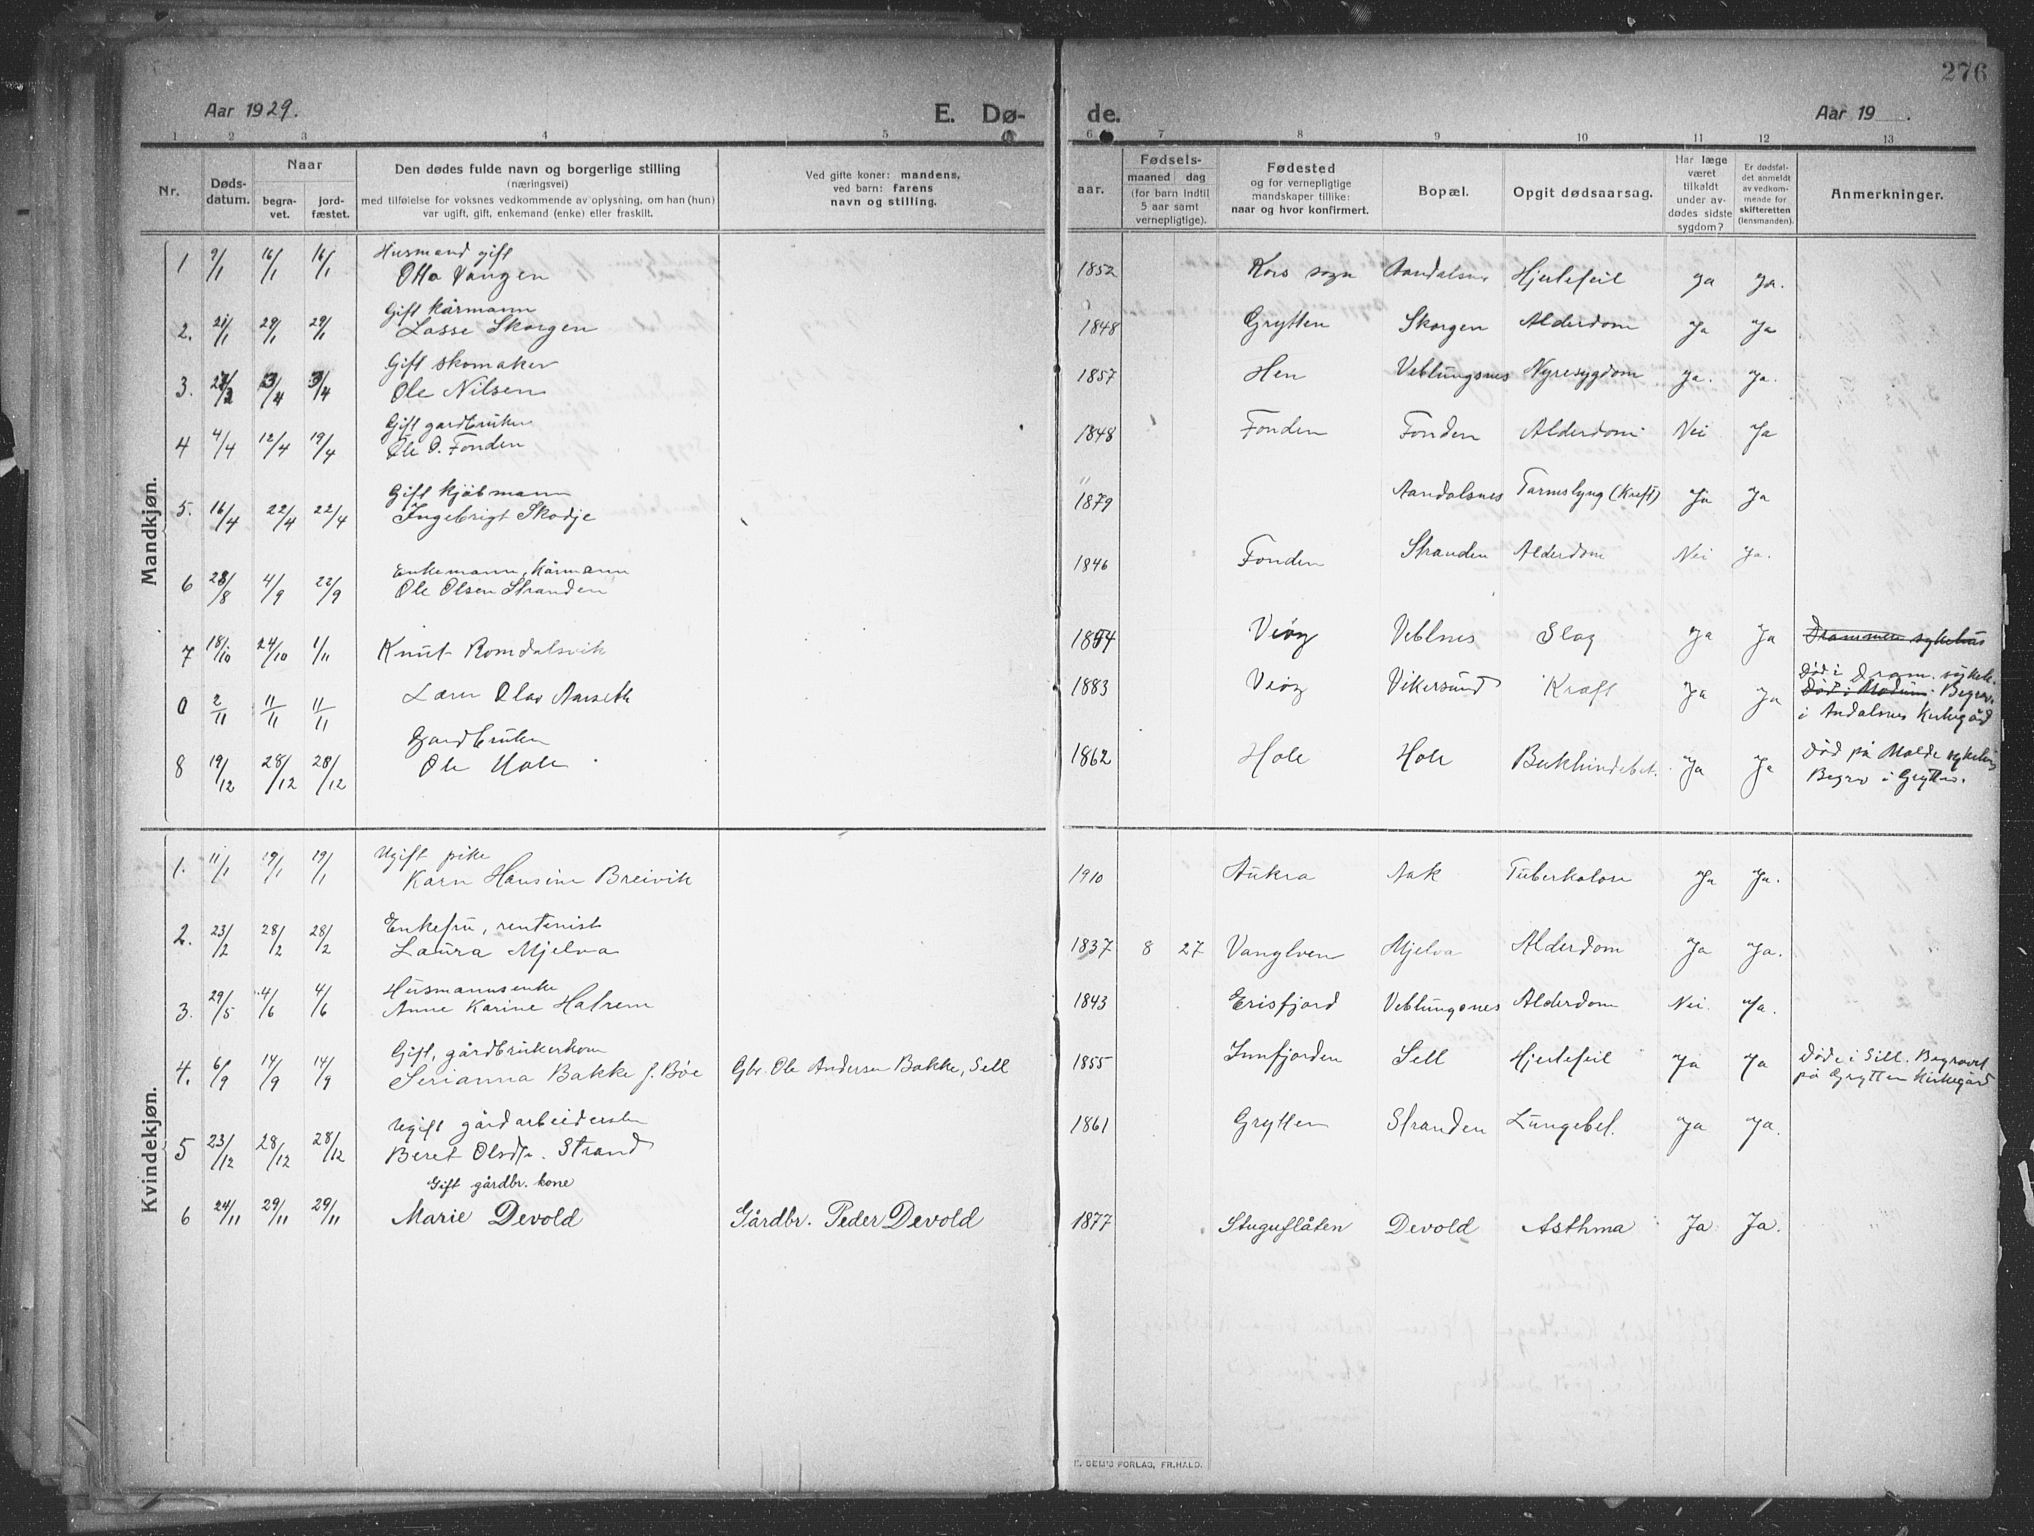 276
Aar 1929. E. Dø- de. Aar 19 .
1 2 3 4 5 6 7 8 9 10 11 12 13
Nr. Døds-datum. Naar begra-vet. jord-fæstet. Den dødes fulde navn og borgerlige stilling (næringsvei) med tilføielse for voksnes vedkommende av oplysning, om han (hun) var ugift, gift, enkemand (enke) eller fraskilt. Ved gifte koner: mandens, ved barn: farens navn og stilling. aar. Fødsels- maaned dag (for barn indtil 5 aar samt vernepligtige). Fødested og for vernepligtige mandskaper tillike: naar og hvor konfirmert. Bopæl. Opgit dødsaarsag. Har læge været tilkaldt under av-dødes sidste sygdom? Er dødsfal-det anmeldt av vedkom-mende for skifteretten (lensmanden). Anmerkninger.
Mandkjøn.
Husmand gift
1 9/1 16/1 16/1 Otto Vangen 1852 Kors sogn Aandalsnes Hjertefeil Ja Ja.
Gift kårmann
2. 21/1 29/1 29/1 Lasse Skorgen 1848 Grytten Skorgen Alderdom Ja Ja
Gift skomaker
3. 3/4 3/4 Ole Nilsen 1857 Hen Veblungsnes Nyresygdom Ja. Ja.
Gift gardbruker
4 4/4 12/4 19/4 Ole O. Fonden 1848 Fonden Fonden Alderdom Nei Ja
Gift kjøbmann
5. 16/4 22/4 22/4 Ingebrigt Skodje 1879 Aandalsnes Tarmslyng (Kreft) Ja Ja
Enkemann, kårmann
6 28/8 4/9 22/9 Ole Olsen Stranden 1846 Fonden Stranden Alderdom Nei Ja.
7 18/10 24/10 1/11 Knut Romdalsvik Veøy Veblnes Slag Ja Ja Drammen sykehus
0 2/11 11/11 11/11 Lærer Olav Aarseth 1883 Veøy Vikersund Kræft Ja Ja Død i Dram. sykeh.
Død i Modum. Begrav.
i Andalsnes Kirkegård
Gardbruker
8 19/12 28/12 28/12 Ole Hole 1862 Hole Hole Bukhindebet. Ja Ja Død på Molde sykehus
Begrav i Grytten.
Kvindekjøn.
Ugift pike
1. 11/1 19/1 19/1 Karn Hansine Breivik 1910 Aukra Aak Tuberkolose Ja Ja.
Enkefru, rentenist
2. 23/2 28/2 28/2 Laura Mjelva 1837 8 27 Vanglven Mjelva Alderdom Ja Ja.
Husmannsenke
3. 29/5 4/6 4/6 Anne Karine Hatrem 1843 Erisfjord Veblungsnes Alderdom Nei Ja.
Gift, gårdbrukerkone
4. 6/9 14/9 14/9 Serianna Bakke f. Bøe Gbr. Ole Andersen Bakke, Sell 1855 Innfjorden Sell Hjertefeil Ja Ja Døde i Sell. Begravet
på Grytten Kirkegård
Ugift gårdarbeiderske
5 23/12 28/12 28/12 Beret Olsdtr. Strand 1861 Grytten Stranden Lungebet. Ja Ja.
Gift gårdbr. kone
6 24/11 29/11 29/11 Marie Devold Gårdbr. Peder Devold 1877 Stuguflåten Devold Asthma Ja Ja.
E. SEM'S FORLAG, FR.HALD.